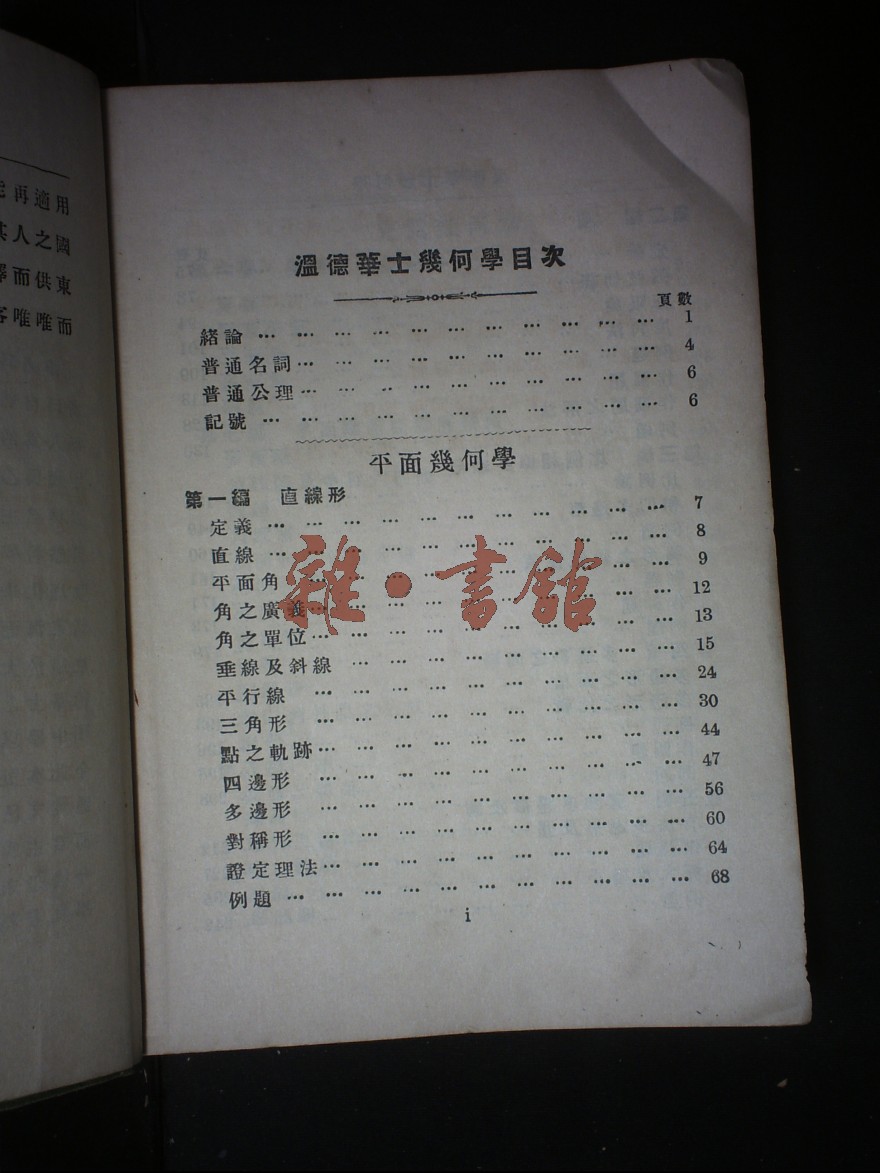 再適用
人之國
而供東
客唯唯而
溫德華士幾何學目次
頁數
緒論 … … … … … … … … … … … 1
普通名詞 … … … … … … … … … … 4
普通公理 … … … … … … … … … … 6
記號 … … … … … … … … … … … 6
平面幾何學
第一編 直線形
定義 … … … … … … … … … … … 7
直線 … … … … … … … … … … … 8
平面角 … … … … … … … … … … 9
角之廣義 … … … … … … … … … … 12
角之單位 … … … … … … … … … … 13
垂線及斜線 … … … … … … … … … 15
平行線 … … … … … … … … … … 24
三角形 … … … … … … … … … … 30
點之軌跡 … … … … … … … … … … 44
四邊形 … … … … … … … … … … 47
多邊形 … … … … … … … … … … 56
對稱形 … … … … … … … … … … 60
證定理法 … … … … … … … … … … 64
例題 … … … … … … … … … … … 68
i
雜·書館